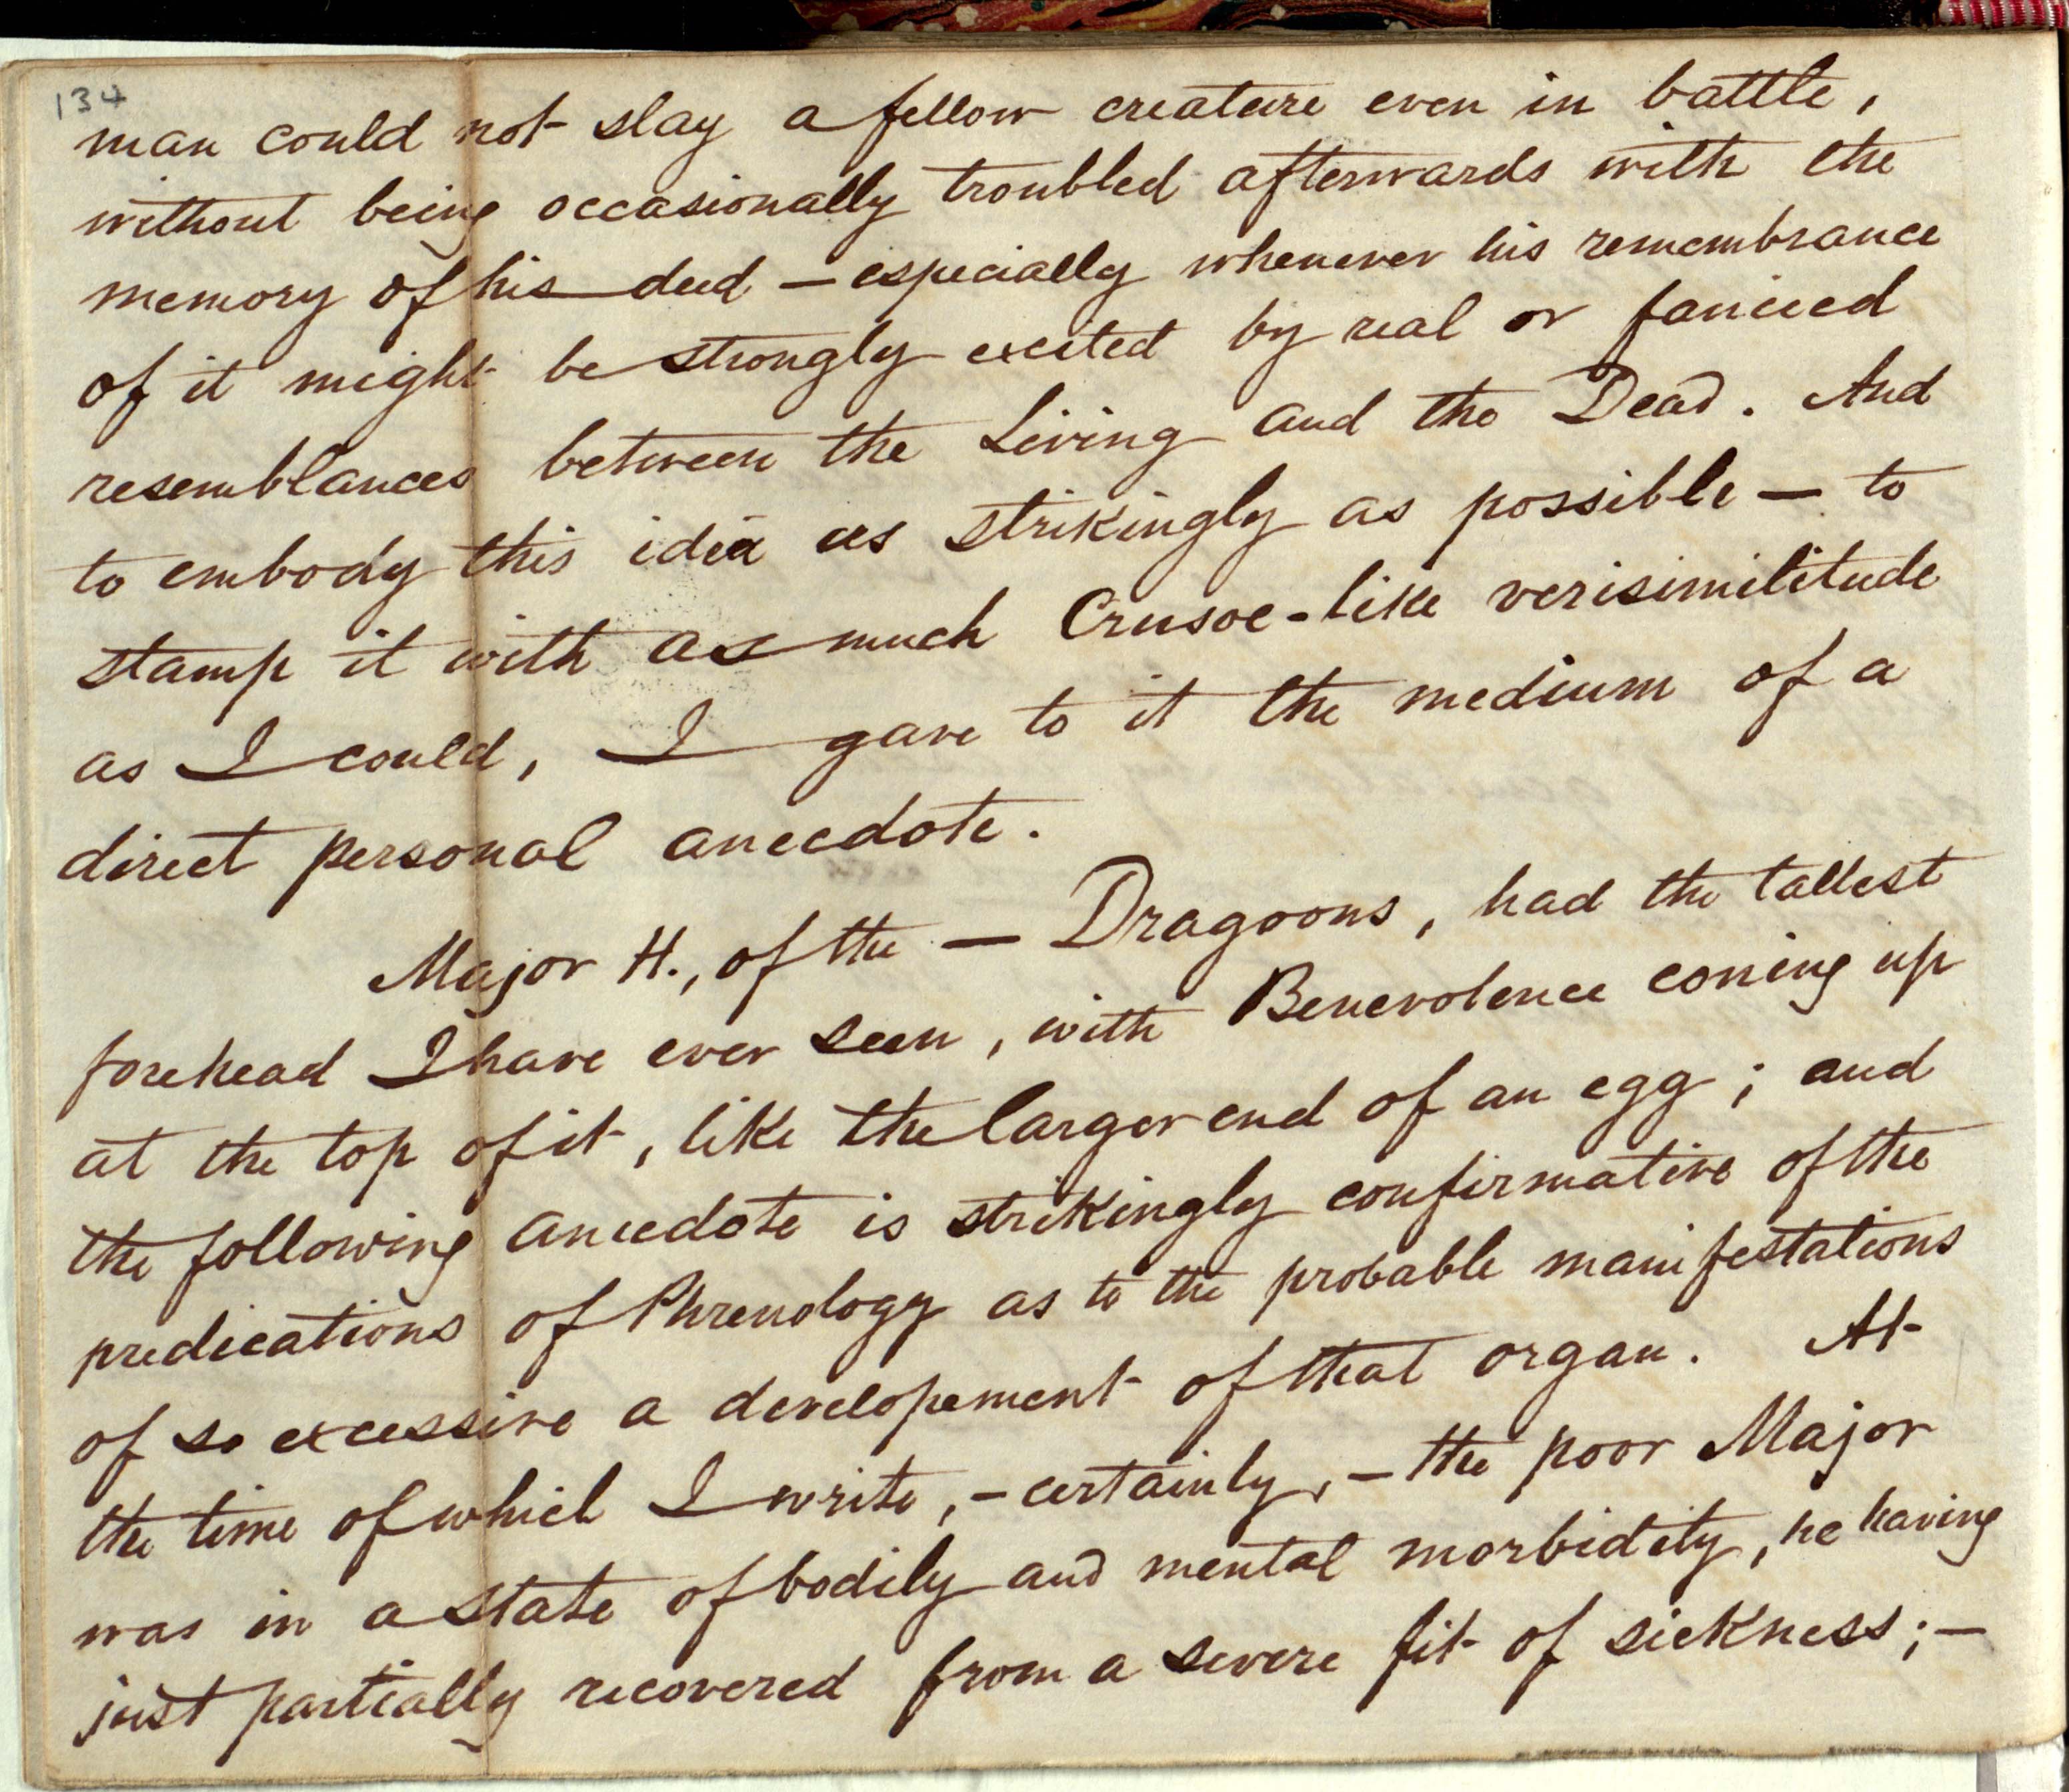 134
man could not slay a fellow creature even in battle,
without being occasionally troubled afterwards with the
memory of his deed — especially whenever his remembrance
of it might be strongly excited by real or fancied
resemblances between the Living and the Dead. And
to embody this idea as strikingly as possible — to
stamp it with as much Crusoe-like verisimilitude
as I could, I gave to it the medium of a
direct personal anecdote.
Major H., of the — Dragoons, had the tallest
forehead I have ever seen, with Benevolence coming up
at the top of it, like the larger end of an egg; and
the following anecdote is strikingly confirmative of the
predications of Phrenology as to the probable manifestations
of so excessive a developement of that organ. At
the time of which I write, – certainly, – the poor Major
was in a state of bodily and mental morbidity, he having
just partially recovered from a severe fit of sickness; —